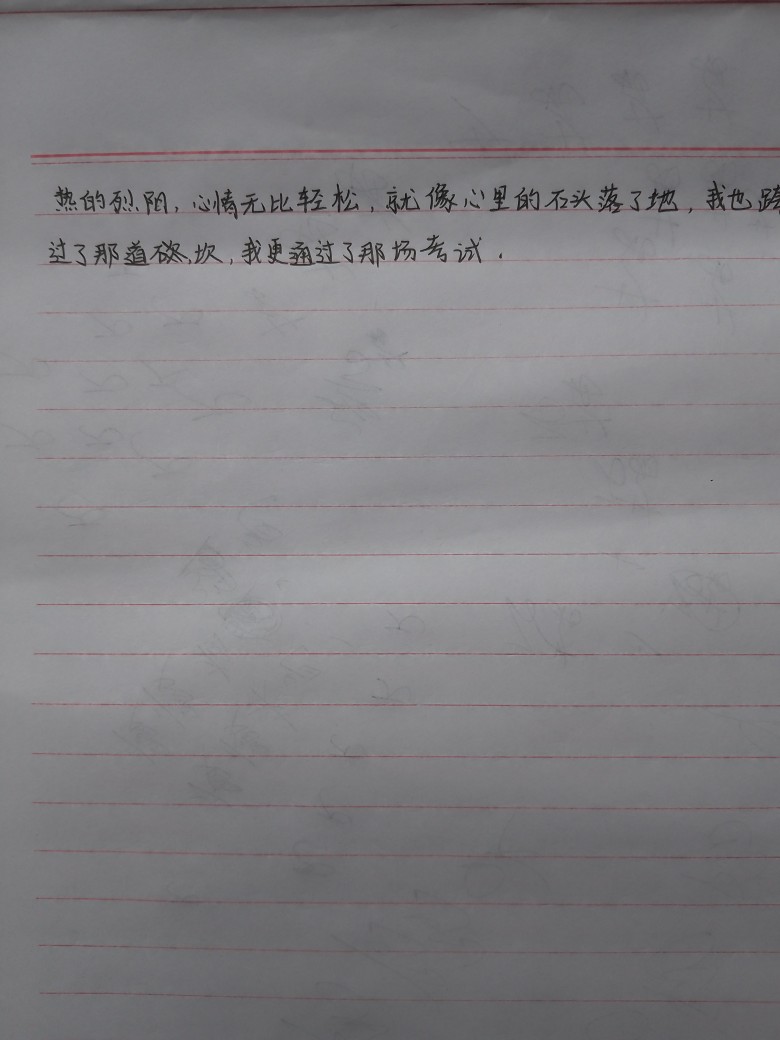 热的烈阳，心情无比轻松，就像心里的石头落了地，我也跨
过了那道坎，我更通过了那场考试．